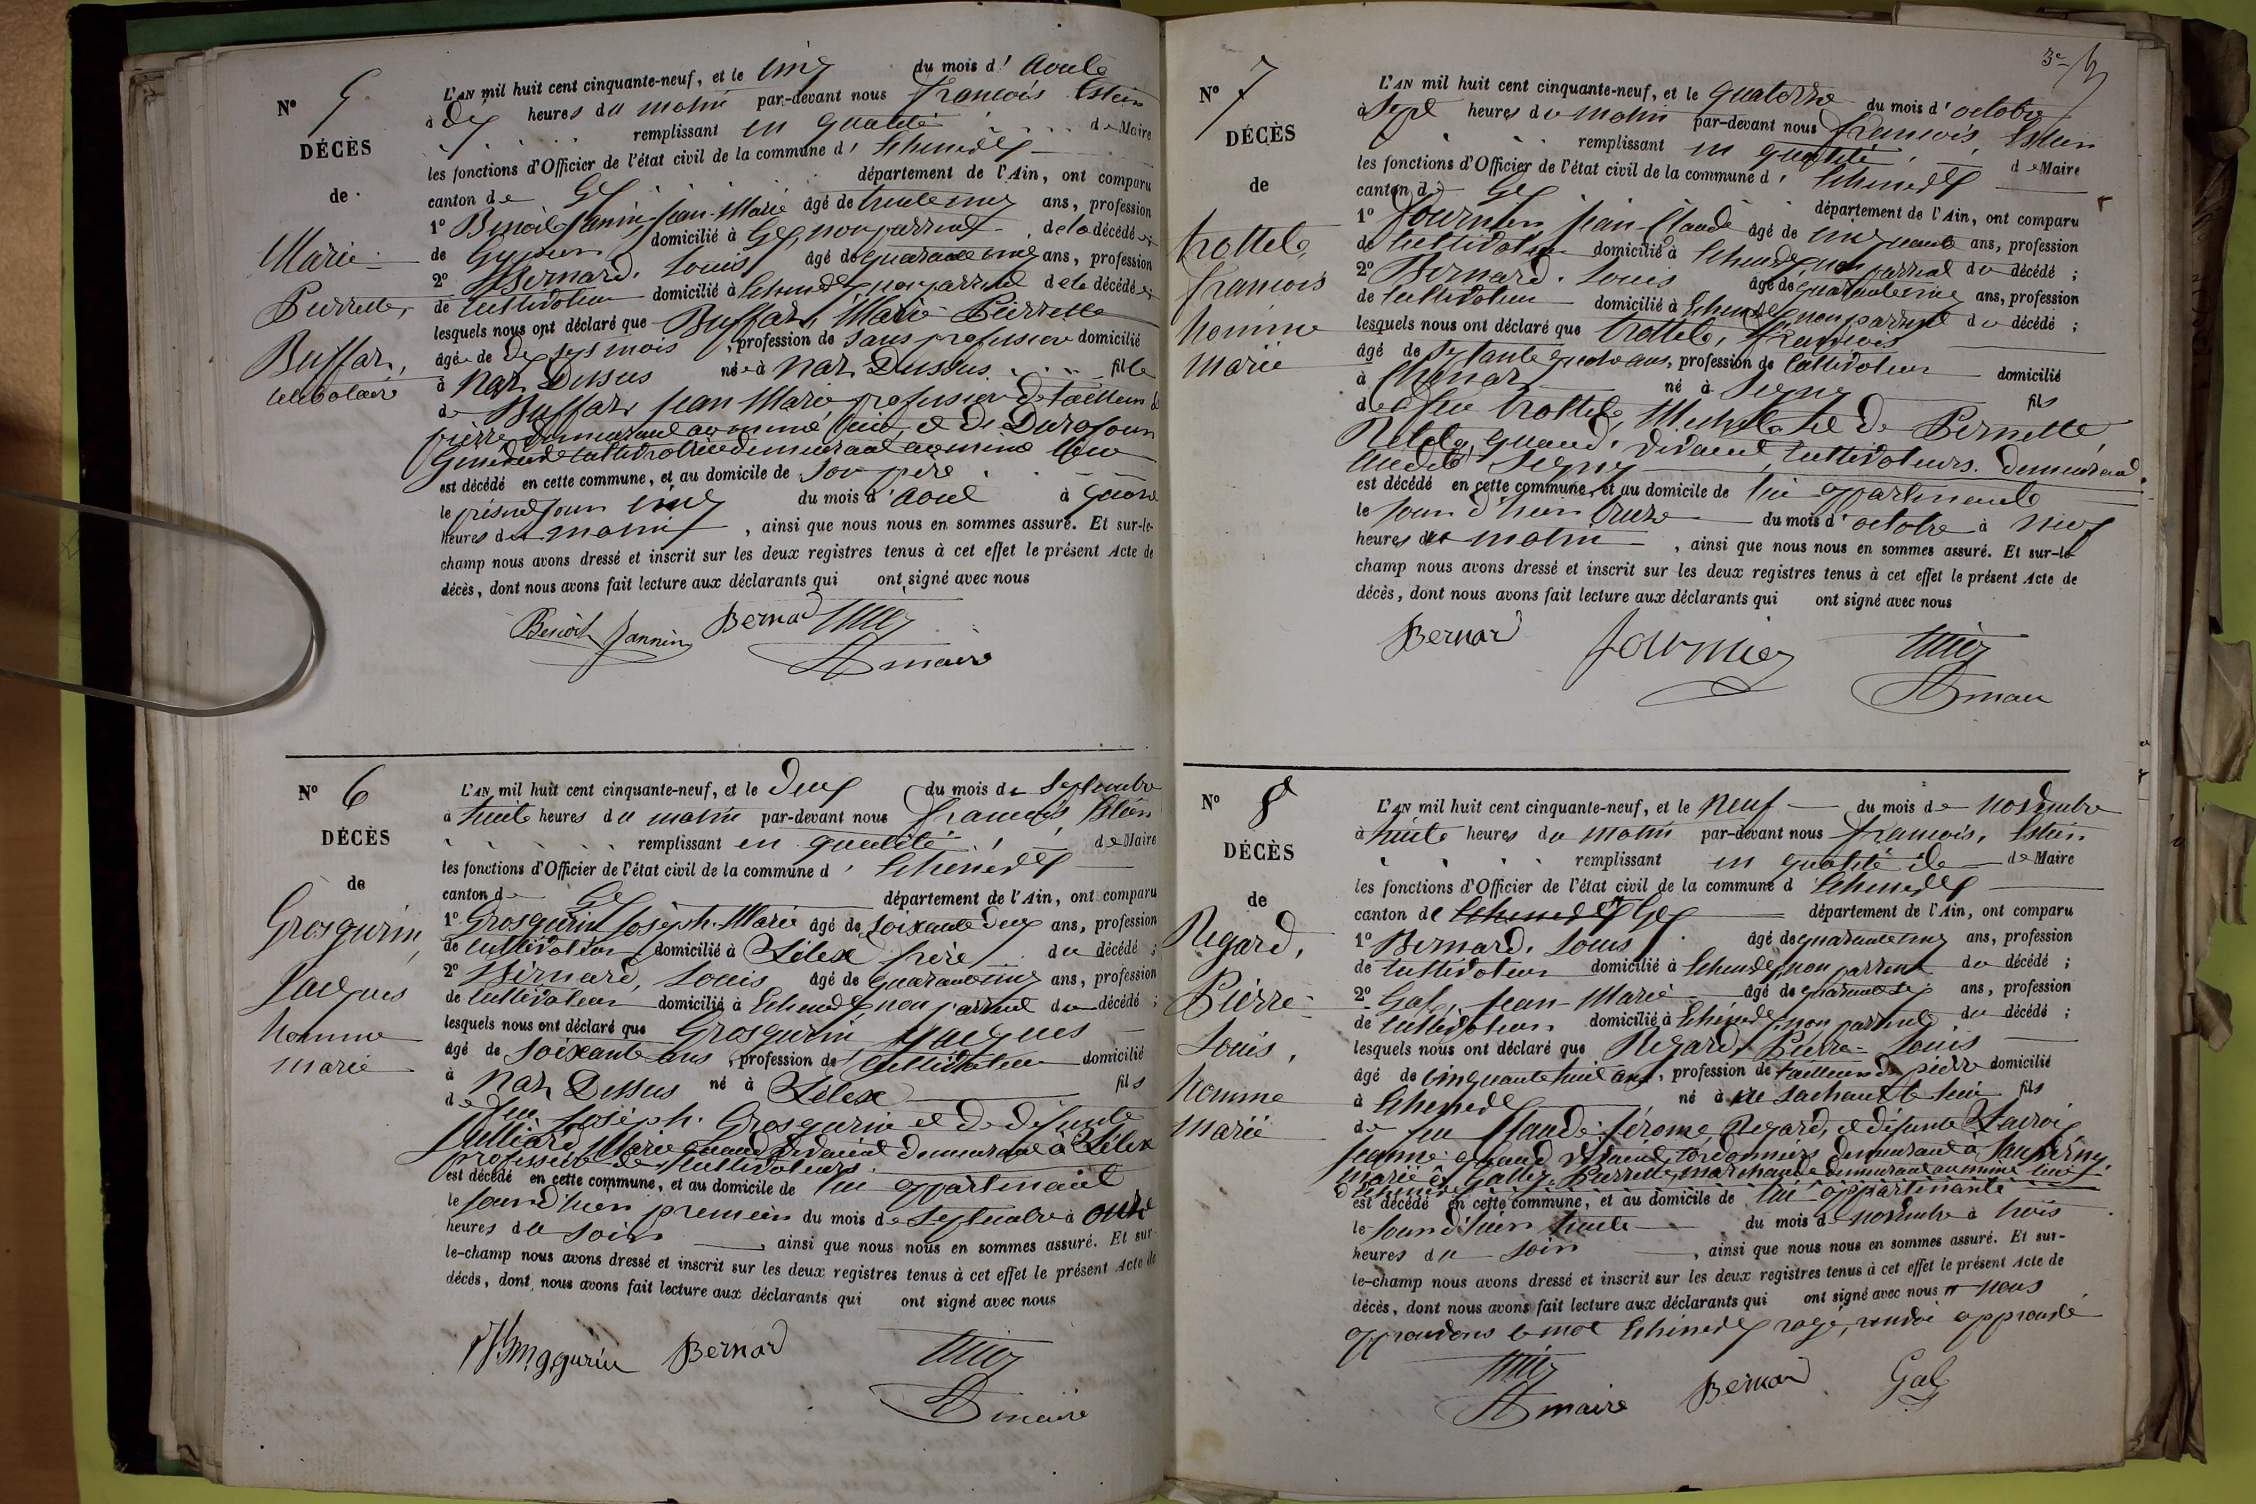 N° 5
DÉCÈS
de
Marie
Pierrette,
Buffaz,
célibataire
L'AN mil huit cent cinquante-neuf, et le cinq du mois d'Aoûte
à dix heures du matin par-devant nous François Estier
remplissant en qualité de Maire
les fonctions d'Officier de l'état civil de la commune d'Echenevex
canton de Gex département de l'Ain, ont comparu
1° Benoit Jannin Jean-Marie âgé de trente cinq ans, profession
de domicilié à Gex, non parrent de la décédée
2° Bernard, Louis âgé de quarante cinq ans, profession
de cultivateur domicilié à Echenevex non parrent de la décédée
lesquels nous ont déclaré que Buffaz, Marie Pierrette
âgée de dix sept mois, profession de sans profession domicilié
à Naz Dessus née à Naz Dessus fille
de Buffaz Jean Marie profession de tailleur de
pierre demeurant au même lieu, et de
cultivatrice demeurant au même lieu
est décédé en cette commune, et au domicile de son père
le présent jour cinq du mois d'août à quatre
heures du matin, ainsi que nous nous en sommes assuré. Et sur-le-
champ nous avons dressé et inscrit sur les deux registres tenus à cet effet le présent Acte de
décès, dont nous avons fait lecture aux déclarants qui ont signé avec nous
Benoit Jannin Bernard
maire
N° 6
DÉCÈS
de
Grosgurin,
Jacques
homme
marié
L'AN mil huit cent cinquante-neuf, et le deux du mois de Septembre
à huite heures du matin par-devant nous François, Estier
remplissant en qualité de Maire
les fonctions d'Officier de l'état civil de la commune d'Echenevex
canton de Gex département de l'Ain, ont comparu
1° Grosgurin Joseph-Marie âgé de soixante deux ans, profession
de cultivateur domicilié à Lélex frère du décédé ;
2° Bernard, Louis âgé de quarante cinq ans, profession
de cultivateur domicilié à Echenevex non parrent du décédé ;
lesquels nous ont déclaré que Grosgurin Jacques
âgé de soixante ans, profession de cultivateur domicilié
à Naz Dessus né à Lélex fils
de feu Joseph Grosgurin et de défunte
Julliard Marie quand vivaient demeurant à Lélex
profession de cultivateurs
est décédé en cette commune, et au domicile de lui appartenant
le jour d'hier premier du mois de septembre à onze
heures du soir, ainsi que nous nous en sommes assuré. Et sur
le-champ nous avons dressé et inscrit sur les deux registres tenus à cet effet le présent Acte de
décès, dont nous avons fait lecture aux déclarants qui ont signé avec nous
Grosgurin Bernard
maire
3e
N° 7
DÉCÈS
de
Trottet,
François
homme
marié
L'AN mil huit cent cinquante-neuf, et le quatorze du mois d'octobre
à sept heures du matin par-devant nous François, Estier
remplissant en qualité de Maire
les fonctions d'Officier de l'état civil de la commune d'Echenevex
canton de Gex département de l'Ain, ont comparu
1° Fournier Jean Claude âgé de cinquante ans, profession
de cultivateur domicilié à Echenevex non parrent du décédé ;
2° Bernard. Louis âgé de quarante cinq ans, profession
de cultivateur domicilié à Echenevex non parrent du décédé ;
lesquels nous ont déclaré que Trottet, François
âgé de septante quatre ans, profession de cultivateur domicilié
à Chenaz né à Segny fils
de feu Trottet, Michel et de Pernette
quand vivaient, cultivateurs. demeurant
audit Segny
est décédé en cette commune, et au domicile de lui appartenante
le jour d'hier treize du mois d'octobre à neuf
heures du matin, ainsi que nous nous en sommes assuré. Et sur-le-
champ nous avons dressé et inscrit sur les deux registres tenus à cet effet le présent Acte de
décès, dont nous avons fait lecture aux déclarants qui ont signé avec nous
Bernard Fournier
maire
N° 8
DÉCÈS
de
Regard,
Pierre-
Louis,
homme
marié
L'AN mil huit cent cinquante-neuf, et le neuf du mois de novembre
à huite heures du matin par-devant nous François, Estier
remplissant en qualité de de Maire
les fonctions d'Officier de l'état civil de la commune d Echenevex
canton de Echenevex Gex département de l'Ain, ont comparu
1° Bernard. Louis âgé de quarante cinq ans, profession
de cultivateur domicilié à Echenevex non parrent du décédé ;
2° Gal, Jean-Marie âgé de quarante six ans, profession
de cultivateur domicilié à Echenevex non parrent du décédé ;
lesquels nous ont déclaré que Regard, Pierre-Louis
âgé de cinquante huit ans, profession de tailleur de pierre domicilié
à Echenevex né à ne sachant le lieu fils
de feu Claude-Jérome Regard, et défunte
Jeanne quand vivaient, cordonniers demeurant à
marié à Pierrette, marchande demeurant au même lieu
d'Echenevex
est décédé en cette commune, et au domicile de lui appartenante
le jour d'hier huite du mois de novembre à trois
heures du soir, ainsi que nous nous en sommes assuré. Et sur-
le-champ nous avons dressé et inscrit sur les deux registres tenus à cet effet le présent Acte de
décès, dont nous avons fait lecture aux déclarants qui ont signé avec nous nous
approuvons le mot Echenevex rayé, approuvé
maire Bernard Gal